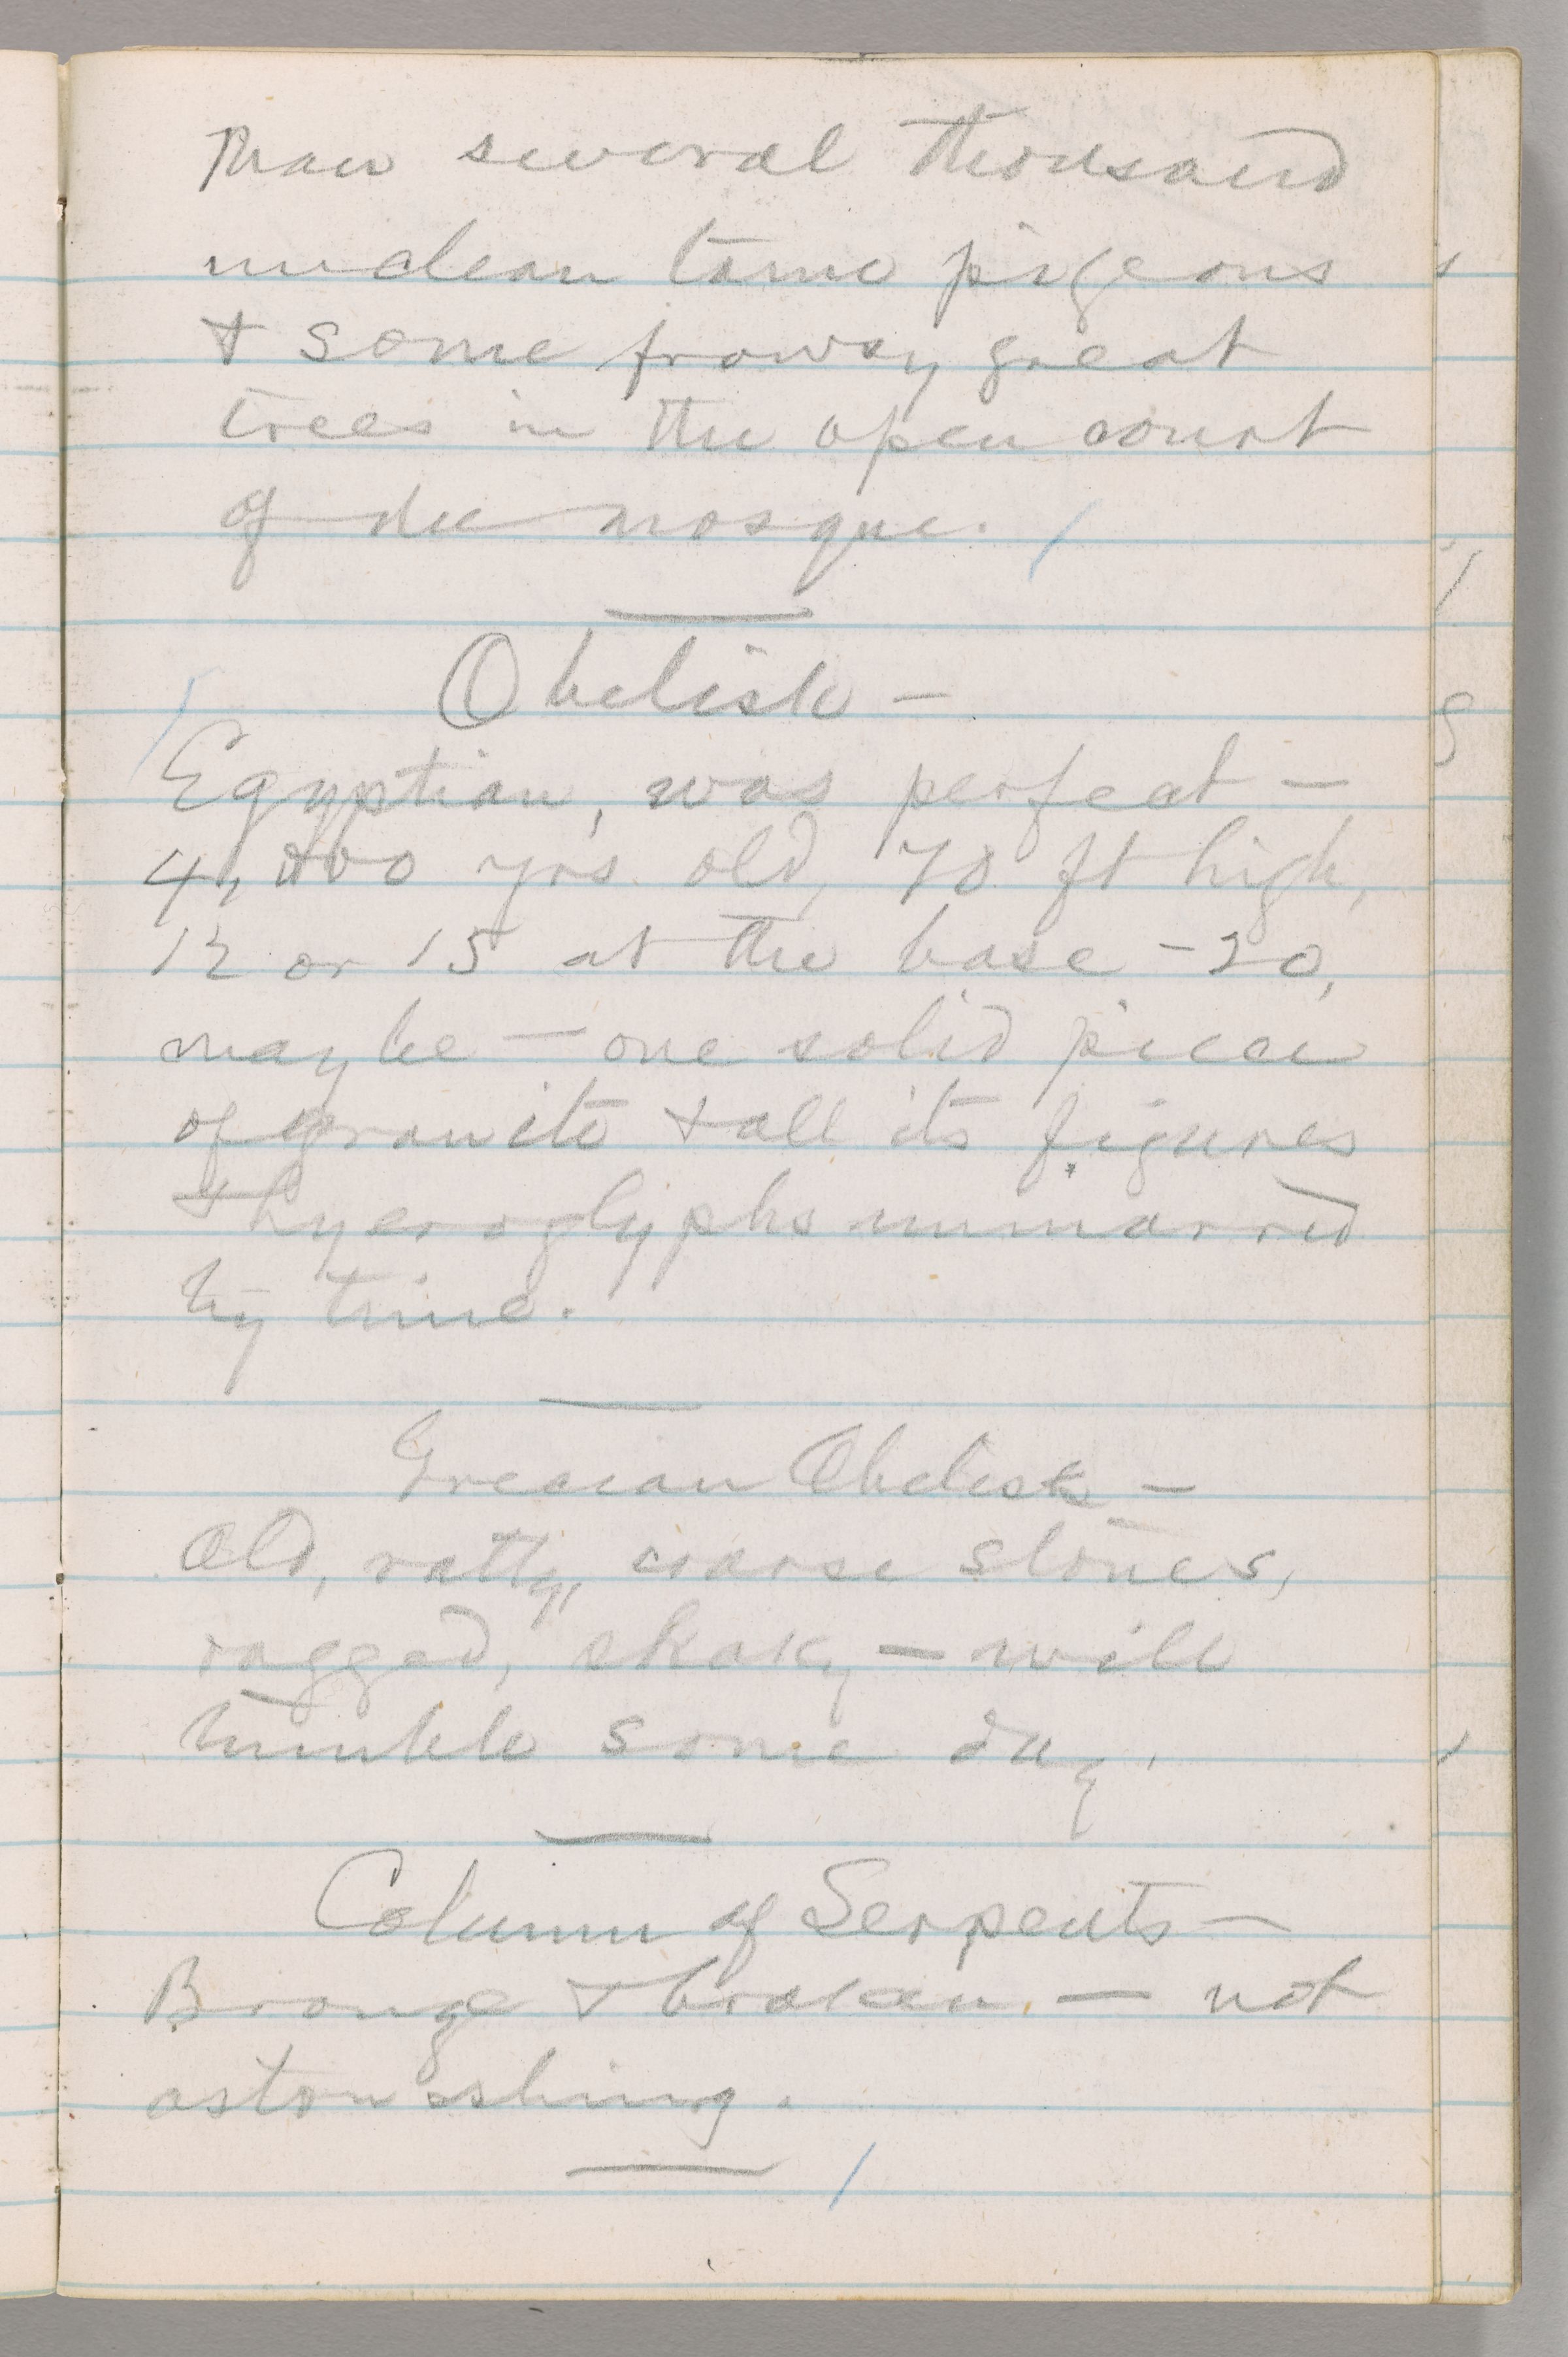 than several thousand
unclean tame pigeons
& some frowsy great
trees in the open court
of the mosque.
Obelisk —
Egyptian, was perfect —
4,000 yrs old, 70 ft high,
12 or 15 at the base – 20,
maybe — one solid piece
of granite & all its figures
& hyeroglyphs unmarred
by time.
Grecian Obelisk —
Old, ratty, coarse stones,
ragged, shaky — will
tumble some day.
Column of Serpents —
Bronze & broken. — not
astonishing.